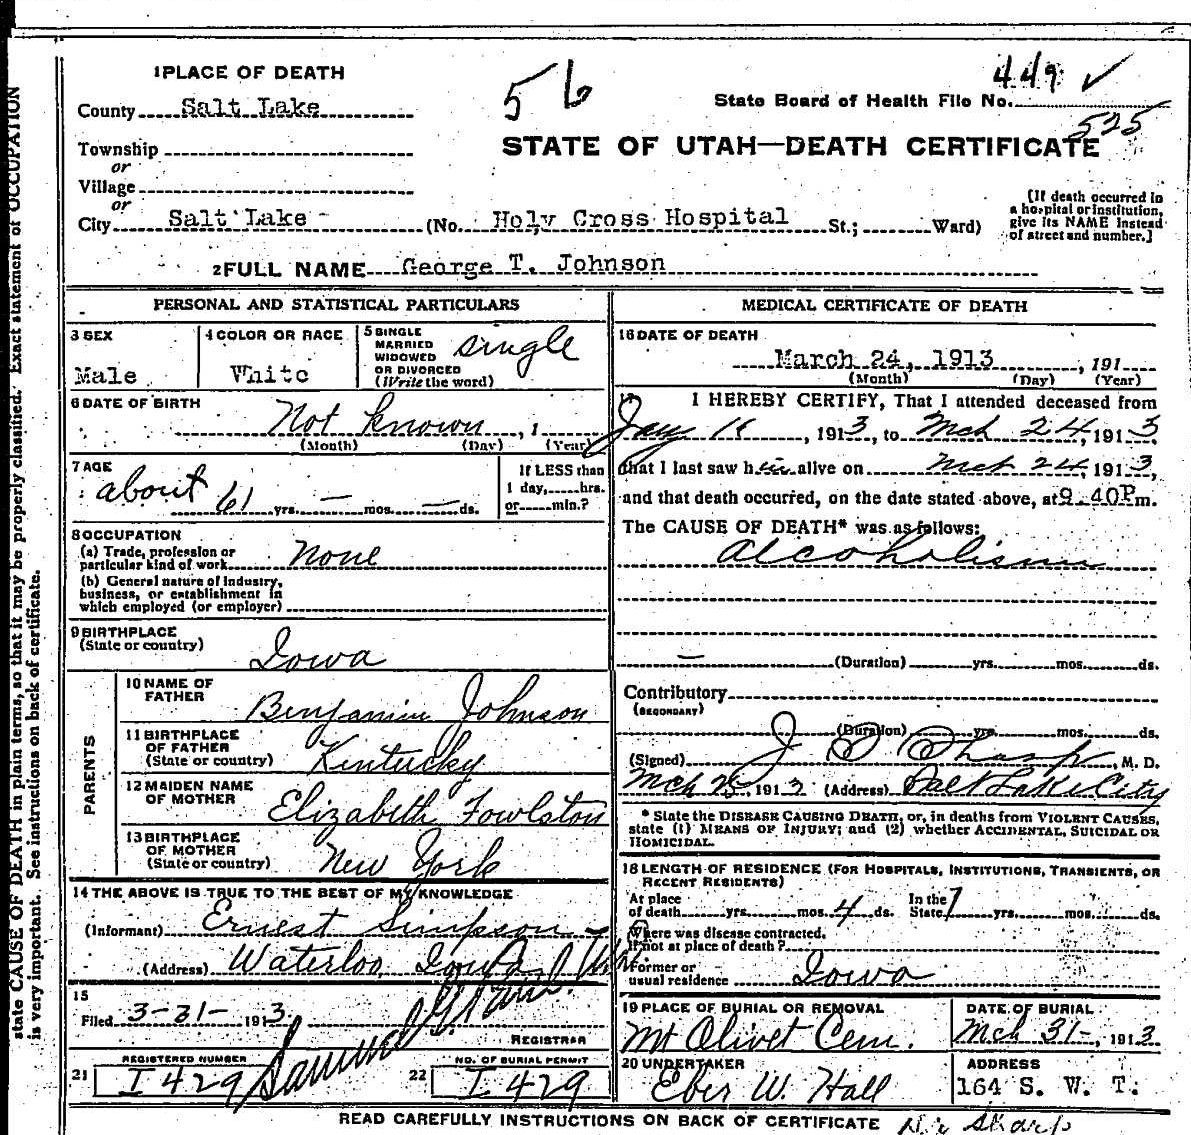 1 PLACE OF DEATH
County Salt Lake
Township
or
Village
or
City Salt Lake (No. Holy Cross Hospital St.; Ward)
56
449 ✓
State Board of Health File No.
525
STATE OF UTAH—DEATH CERTIFICATE
[If death occurred in
a hospital or institution,
give its NAME instead
of street and number.]
2 FULL NAME George T. Johnson
PERSONAL AND STATISTICAL PARTICULARS
3 SEX
Male
4 COLOR OR RACE
White
5 SINGLE
MARRIED
WIDOWED
OR DIVORCED
(Write the word)
single
6 DATE OF BIRTH
Not known, 1
(Month) (Day) (Year)
7 AGE
about 61 yrs. — mos. — ds.
If LESS than
1 day, hrs.
or min.?
8 OCCUPATION
(a) Trade, profession or
particular kind of work None
(b) General nature of industry,
business, or establishment in
which employed (or employer)
9 BIRTHPLACE
(State or country)
Iowa
PARENTS
10 NAME OF
FATHER
Benjamin Johnson
11 BIRTHPLACE
OF FATHER
(State or country) Kentucky
12 MAIDEN NAME
OF MOTHER
Elizabeth Fowlston
13 BIRTHPLACE
OF MOTHER
(State or country) New York
14 THE ABOVE IS TRUE TO THE BEST OF MY KNOWLEDGE
(Informant) Ernest Simpson
(Address) Waterloo, Iowa
15
Filed 3-31- 1913
Samuel
REGISTRAR
REGISTERED NUMBER
21 I 429
NO. OF BURIAL PERMIT
22 I 429
MEDICAL CERTIFICATE OF DEATH
16 DATE OF DEATH
March 24, 1913, 191
(Month) (Day) (Year)
17 I HEREBY CERTIFY, That I attended deceased from
, 1913, to Mch 24, 1913,
that I last saw him alive on Mch 24, 1913,
and that death occurred, on the date stated above, at 9.40 P m.
The CAUSE OF DEATH* was as follows:
Alcoholism
(Duration) yrs. mos. ds.
Contributory
(SECONDARY)
(Duration) yrs. mos. ds.
(Signed) Sharp, M. D.
Mch 25, 1913 (Address) Salt Lake City
* State the DISEASE CAUSING DEATH, or, in deaths from VIOLENT CAUSES,
state (1) MEANS OF INJURY; and (2) whether ACCIDENTAL, SUICIDAL OR
HOMICIDAL.
18 LENGTH OF RESIDENCE (FOR HOSPITALS, INSTITUTIONS, TRANSIENTS, OR
RECENT RESIDENTS)
At place
of death yrs. mos. 4 ds.
In the
State yrs. mos. ds.
Where was disease contracted,
if not at place of death?
Former or
usual residence Iowa
19 PLACE OF BURIAL OR REMOVAL
Mt Olivet Cem.
DATE OF BURIAL
Mch 31-, 1913
20 UNDERTAKER
Eber W. Hall
ADDRESS
164 S. W. T.
READ CAREFULLY INSTRUCTIONS ON BACK OF CERTIFICATE
Sharp
state CAUSE OF DEATH in plain terms, so that it may be properly classified. Exact statement of OCCUPATION
is very important. See instructions on back of certificate.